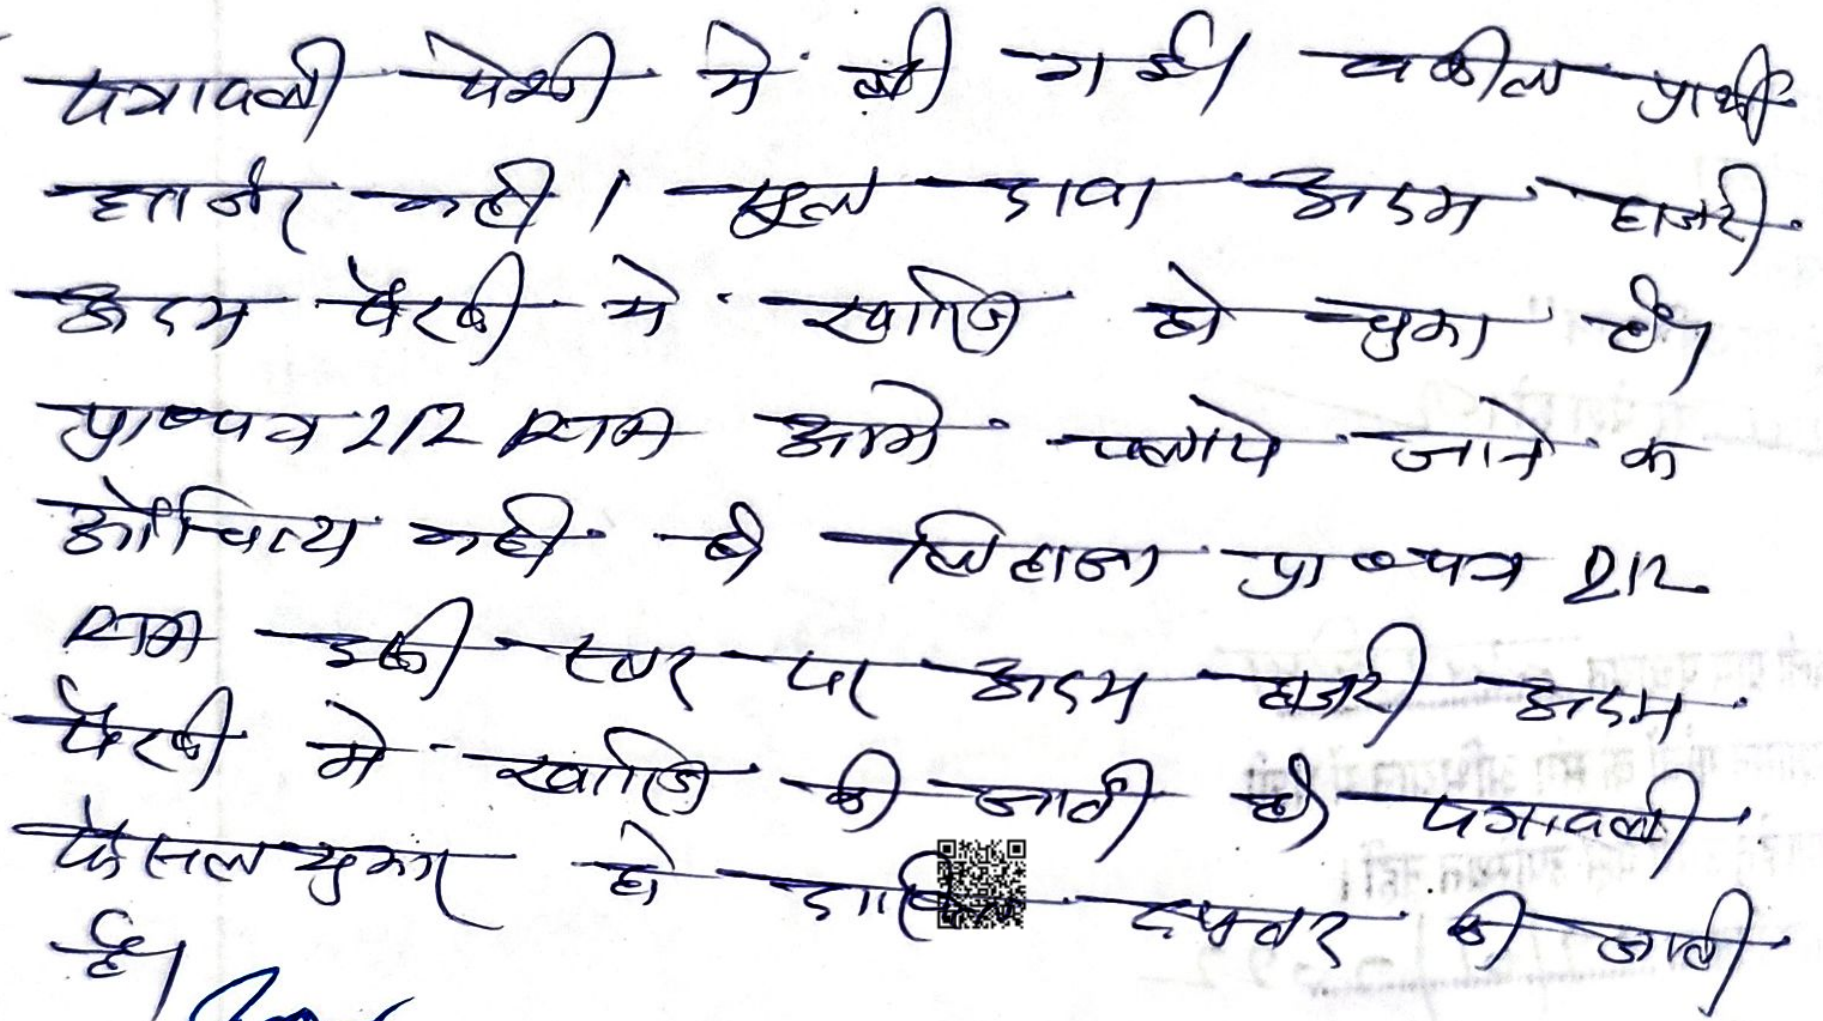 पत्रावली पेशी मे ली गई। वकील प्रार्थी
हाजिर नही। मूल दावा अदम हाजरी
अदम पैरवी मे खारिज हो चुका है।
प्रा०पत्र 212 RTA आगे चलाये जाने क
औचित्य नही है लिहाजा प्रा०पत्र 212
RTA इसी स्तर पर अदम हाजरी अदम
पैरवी मे खारिज की जाती है पत्रावली
फैसल शुमार हो दाखिल दफ्तर की जाती
है।